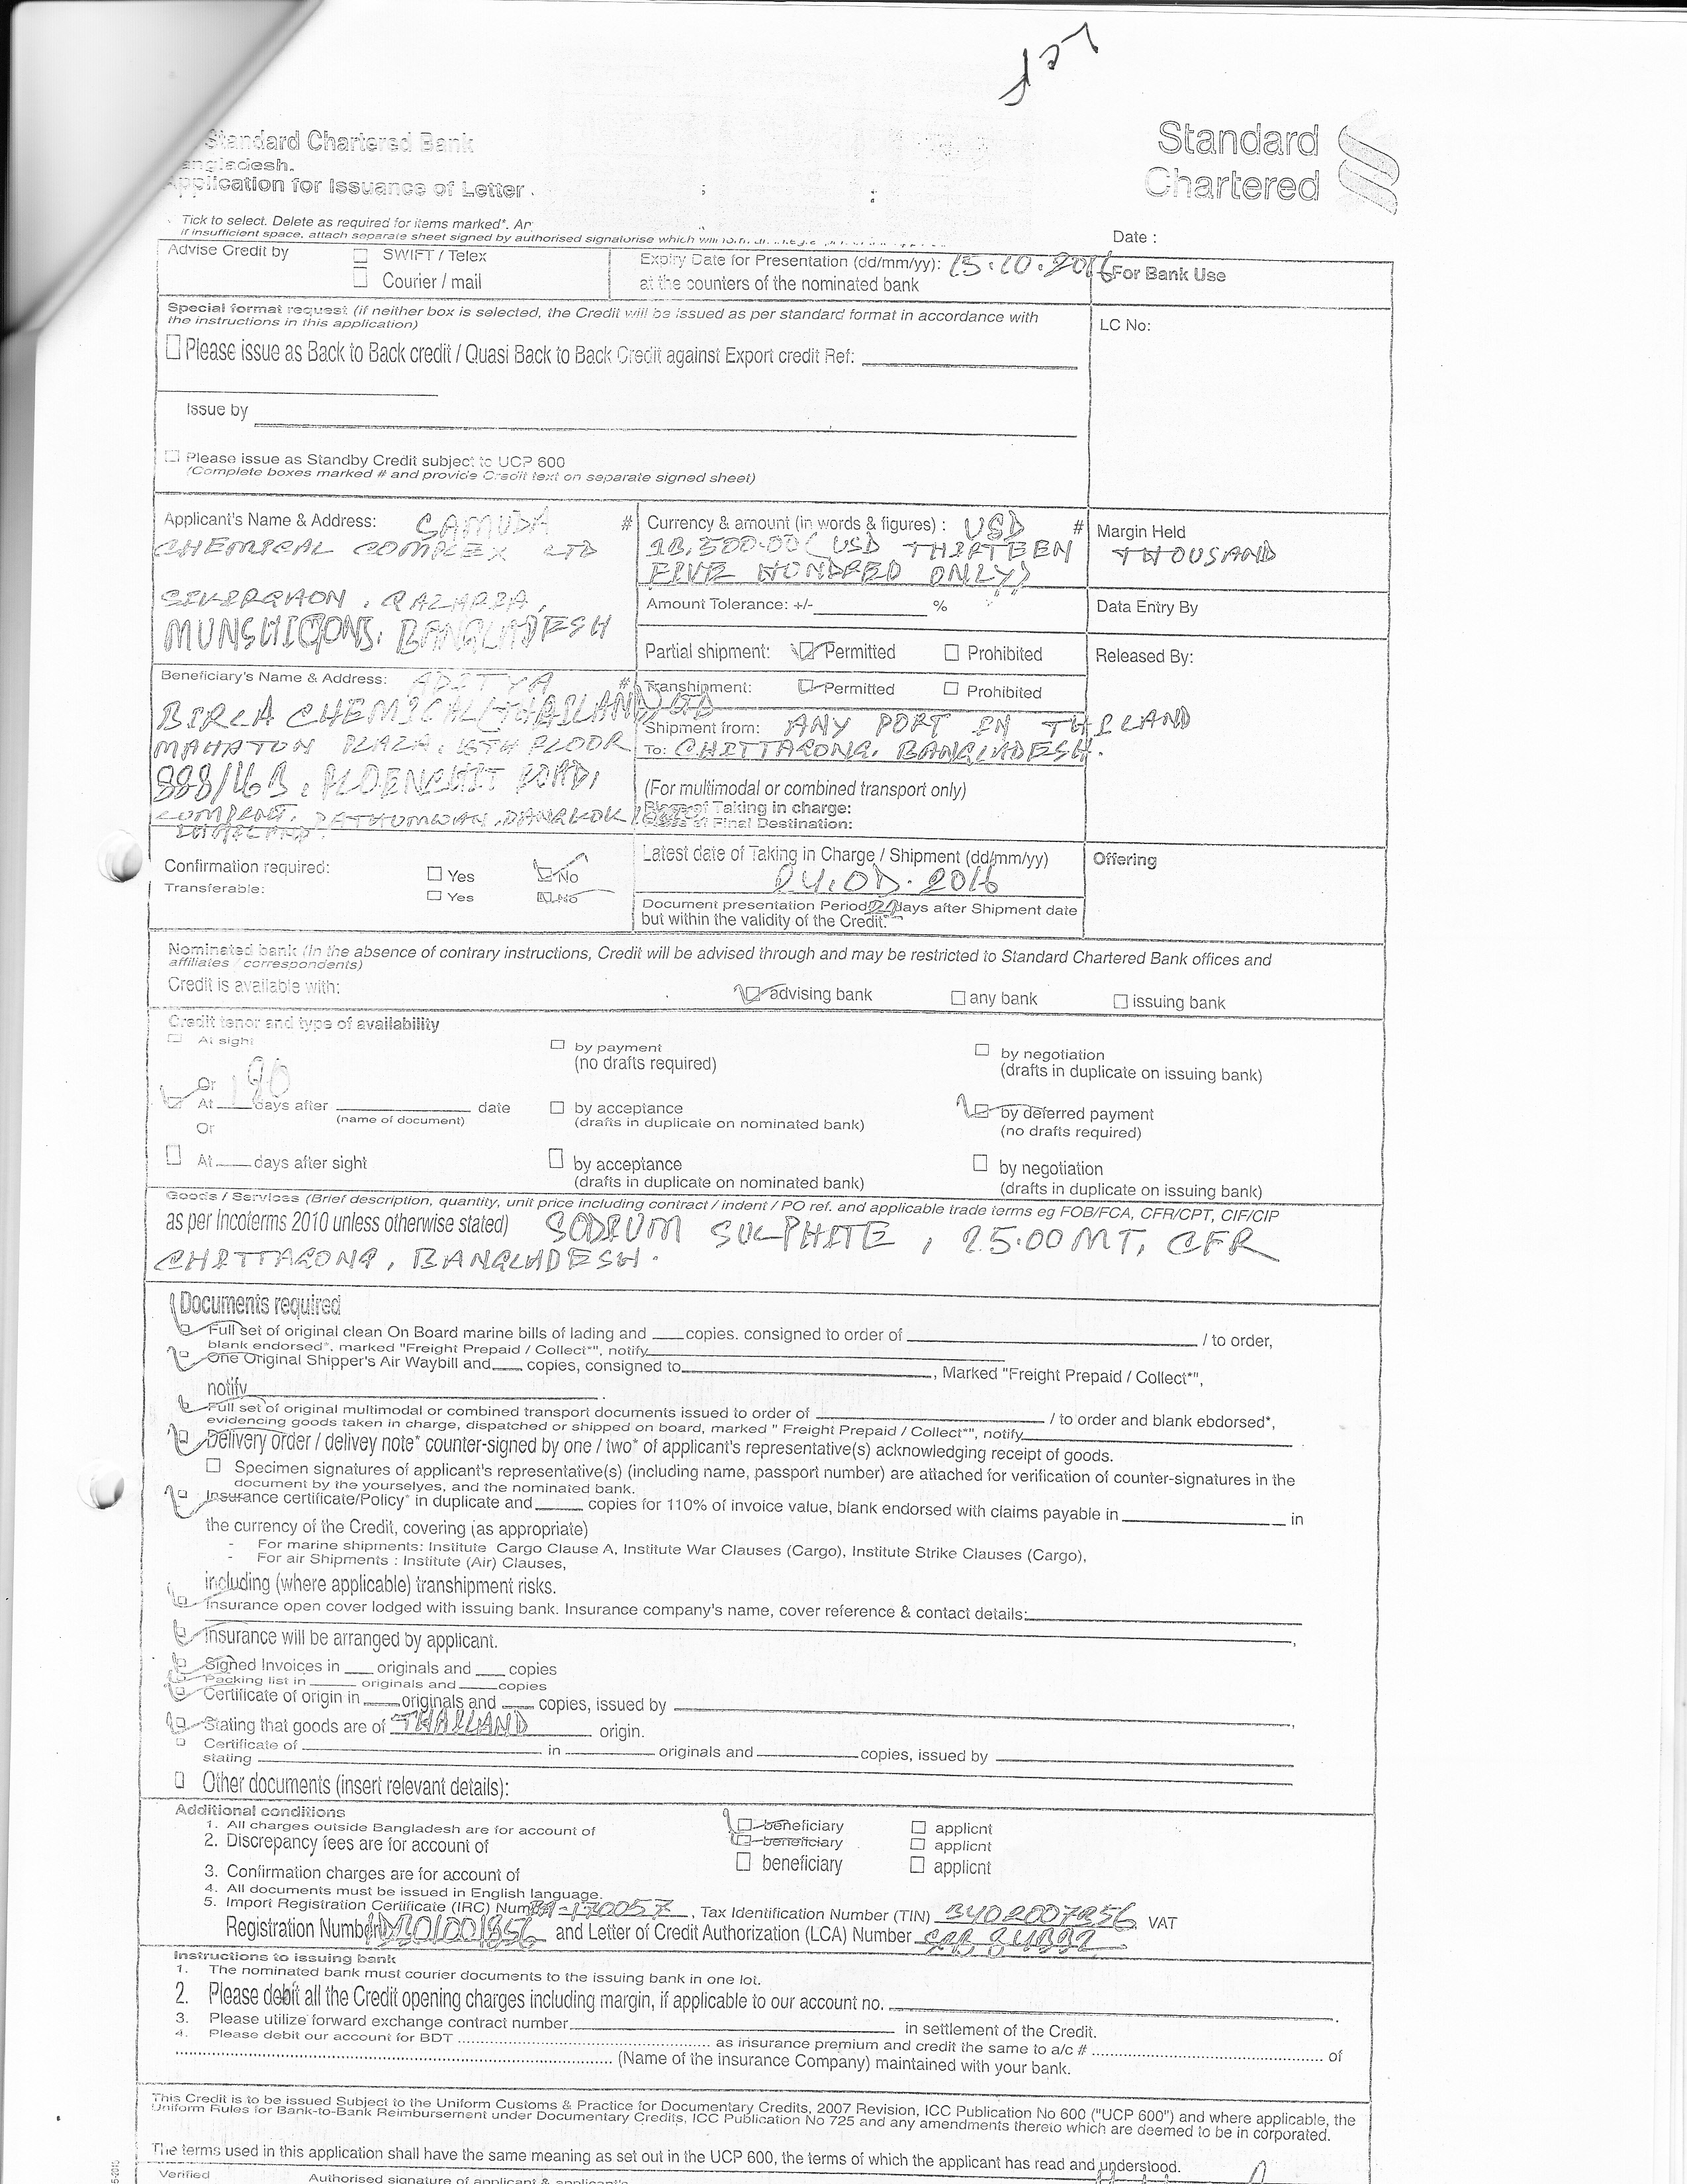 Standard Chartered Bank
Bangladesh.
Application for Issuance of Letter
Standard
Chartered
Tick to select. Delete as required for items marked*.
If insufficient space, attach separate sheet signed by authorised signatorise which will
Date :
Advise Credit by
SWIFT / Telex
Courier / mail
Expiry Date for Presentation (dd/mm/yy): 15.10.2016
at the counters of the nominated bank
For Bank Use
Special format request (if neither box is selected, the Credit will be issued as per standard format in accordance with
the instructions in this application)
LC No:
Please issue as Back to Back credit / Quasi Back to Back Credit against Export credit Ref:
Issue by
Please issue as Standby Credit subject to UCP 600
(Complete boxes marked # and provide Credit text on separate signed sheet)
Applicant's Name & Address: SAMUDA #
CHEMICAL COMPLEX LTD
MUNSHIGONJ. BANGLADESH
Currency & amount (in words & figures) : USD #
13,500.00 (USD THIRTEEN THOUSAND
FIVE HUNDRED ONLY)
Margin Held
Amount Tolerance: +/- %
Data Entry By
Partial shipment: Permitted Prohibited
Released By:
Beneficiary's Name & Address: ADITYA #
BIRLA CHEMICAL (THAILAND) LTD
MAHATUN PLAZA, 16TH FLOOR
888/163, PLOENCHIT ROAD,
LUMPINI, PATHUMWAN, BANGKOK
THAILAND.
Transhipment: Permitted Prohibited
Shipment from: ANY PORT IN THILAND
To: CHITTAGONG, BANGLADESH.
(For multimodal or combined transport only)
Place of Taking in charge:
Place of Final Destination:
Confirmation required: Yes No
Transferable: Yes No
Latest date of Taking in Charge / Shipment (dd/mm/yy)
Offering
Document presentation Period 21 days after Shipment date
but within the validity of the Credit.
Nominated bank (In the absence of contrary instructions, Credit will be advised through and may be restricted to Standard Chartered Bank offices and
affiliates / correspondents)
Credit is available with: advising bank any bank issuing bank
Credit tenor and type of availability
At sight
by payment
(no drafts required)
by negotiation
(drafts in duplicate on issuing bank)
Or
At days after date
(name of document)
by acceptance
(drafts in duplicate on nominated bank)
by deferred payment
(no drafts required)
Or
At days after sight
by acceptance
(drafts in duplicate on nominated bank)
by negotiation
(drafts in duplicate on issuing bank)
Goods / Services (Brief description, quantity, unit price including contract / indent / PO ref. and applicable trade terms eg FOB/FCA, CFR/CPT, CIF/CIP
as per Incoterms 2010 unless otherwise stated) SODIUM SULPHITE, 25.00 MT, CFR
CHITTAGONG, BANGLADESH.
Documents required
Full set of original clean On Board marine bills of lading and copies. consigned to order of / to order,
blank endorsed*, marked "Freight Prepaid / Collect*", notify
One Original Shipper's Air Waybill and copies, consigned to , Marked "Freight Prepaid / Collect*",
notify
Full set of original multimodal or combined transport documents issued to order of / to order and blank ebdorsed*,
evidencing goods taken in charge, dispatched or shipped on board, marked " Freight Prepaid / Collect*", notify
Delivery order / delivey note* counter-signed by one / two* of applicant's representative(s) acknowledging receipt of goods.
Specimen signatures of applicant's representative(s) (including name, passport number) are attached for verification of counter-signatures in the
document by the yourselyes, and the nominated bank.
Insurance certificate/Policy* in duplicate and copies for 110% of invoice value, blank endorsed with claims payable in in
the currency of the Credit, covering (as appropriate)
- For marine shipments: Institute Cargo Clause A, Institute War Clauses (Cargo), Institute Strike Clauses (Cargo),
- For air Shipments : Institute (Air) Clauses,
including (where applicable) transhipment risks.
Insurance open cover lodged with issuing bank. Insurance company's name, cover reference & contact details:
Insurance will be arranged by applicant.
Signed Invoices in originals and copies
Packing list in originals and copies
Certificate of origin in originals and copies, issued by
Stating that goods are of THAILAND origin.
Certificate of in originals and copies, issued by
stating
Other documents (insert relevant details):
Additional conditions
1. All charges outside Bangladesh are for account of beneficiary applicnt
2. Discrepancy fees are for account of beneficiary applicnt
3. Confirmation charges are for account of beneficiary applicnt
4. All documents must be issued in English language.
5. Import Registration Certificate (IRC) Number , Tax Identification Number (TIN) VAT
Registration Number and Letter of Credit Authorization (LCA) Number
Instructions to issuing bank
1. The nominated bank must courier documents to the issuing bank in one lot.
2. Please debit all the Credit opening charges including margin, if applicable to our account no.
3. Please utilize forward exchange contract number in settlement of the Credit.
4. Please debit our account for BDT as insurance premium and credit the same to a/c # of
(Name of the insurance Company) maintained with your bank.
This Credit is to be issued Subject to the Uniform Customs & Practice for Documentary Credits, 2007 Revision, ICC Publication No 600 ("UCP 600") and where applicable, the
Uniform Rules for Bank-to-Bank Reimbursement under Documentary Credits, ICC Publication No 725 and any amendments thereto which are deemed to be in corporated.
The terms used in this application shall have the same meaning as set out in the UCP 600, the terms of which the applicant has read and understood.
Verified
Authorised signature of applicant & applicant's